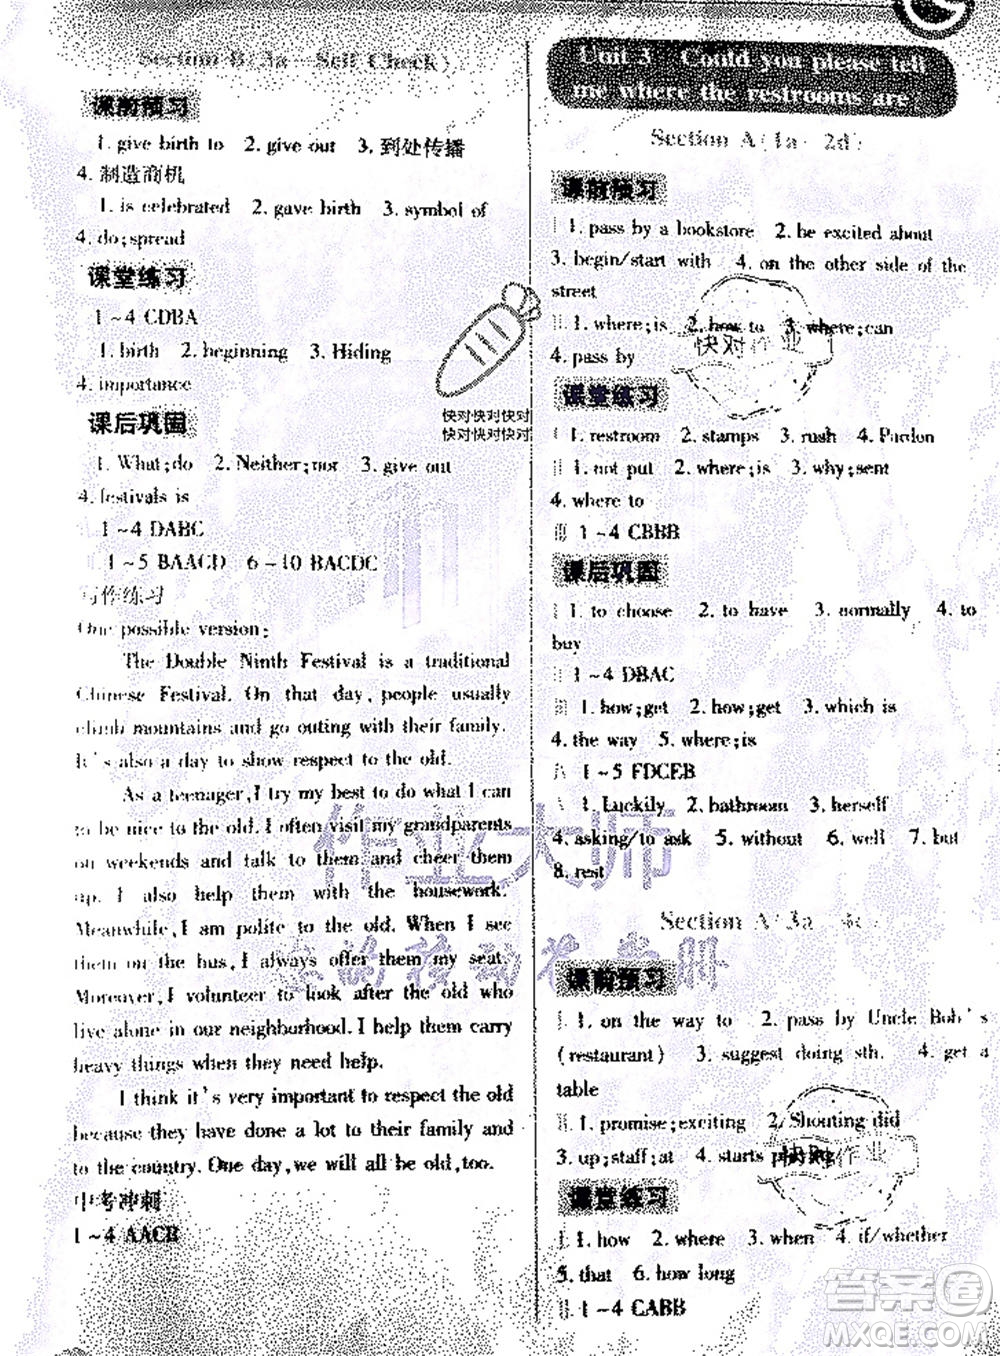 Section B(3a—Self Check)
课前预习
1. give birth to  2. give out  3. 到处传播
4. 制造商机
1. is celebrated  2. gave birth  3. symbol of
4. do;spread
课堂练习
1~4 CDBA
1. birth  2. beginning  3. Hiding
4. importance
课后巩固
1. What;do  2. Neither;nor  3. give out
4. festivals is
1~4 DABC
1~5 BAACD  6~10 BACDC
写作练习
One possible version:
The Double Ninth Festival is a traditional
Chinese Festival. On that day, people usually
climb mountains and go outing with their family.
It's also a day to show respect to the old.
As a teenager, I try my best to do what I can
to be nice to the old. I often visit my grandparents
on weekends and talk to them and cheer them
up. I also help them with the housework.
Meanwhile, I am polite to the old. When I see
them on the bus, I always offer them my seat.
Moreover, I volunteer to look after the old who
live alone in our neighborhood. I help them carry
heavy things when they need help.
I think it's very important to respect the old
because they have done a lot to their family and
to the country. One day, we will all be old, too.
中考冲刺
1~4 AACB
快对快对快对
快对快对快对
Unit 3 Could you please tell
me where the restrooms are?
Section A(1a—2d)
课前预习
1. pass by a bookstore  2. be excited about
3. begin/start with  4. on the other side of the
street
1. where;is  2. how to  3. where;can
4. pass by
快对作业
课堂练习
1. restroom  2. stamps  3. rush  4. Pardon
1. not put  2. where;is  3. why;sent
4. where to
1~4 CBBB
课后巩固
1. to choose  2. to have  3. normally  4. to
buy
1~4 DBAC
1. how;get  2. how;get  3. which is
4. the way  5. where;is
1~5 FDCEB
1. Luckily  2. bathroom  3. herself
4. asking/to ask  5. without  6. well  7. but
8. rest
作业大师
Section A(3a—4c)
课前预习
1. on the way to  2. pass by Uncle Bob's
(restaurant)  3. suggest doing sth.  4. get a
table
1. promise;exciting  2. Shouting did
3. up;staff;at  4. starts playing
快对作业
课堂练习
1. how  2. where  3. when  4. if/whether
5. that  6. how long
1~4 CABB
答案圈
MXQE.COM